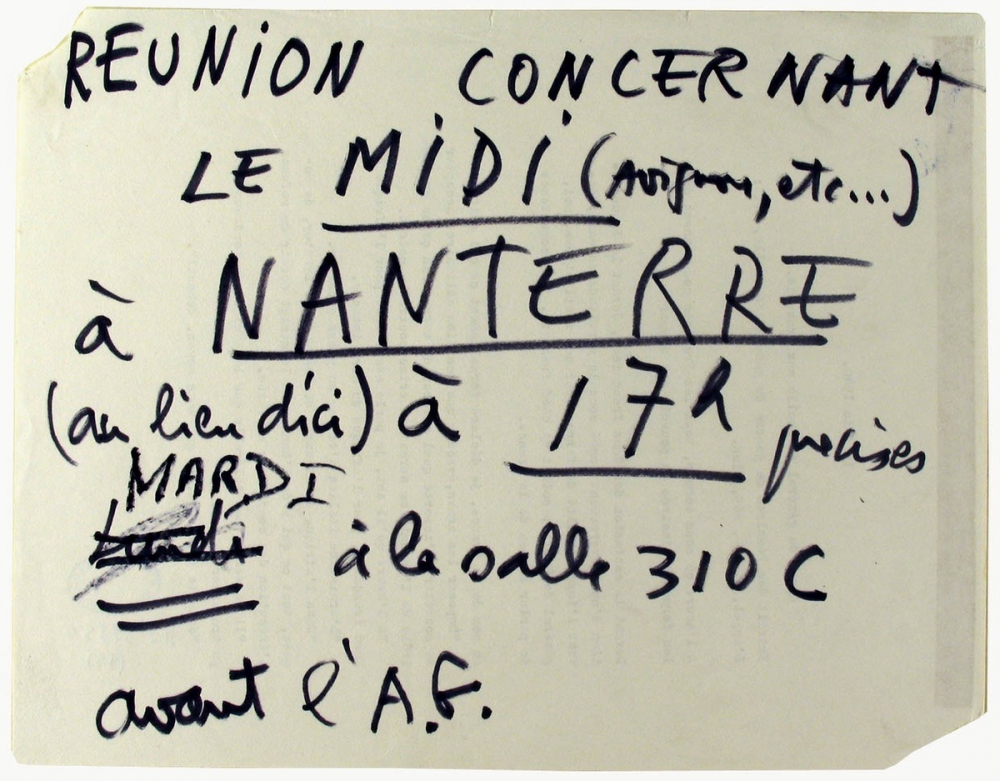 REUNiON CONCERNANT
LE MiDi (Avignon, etc...)
à NANTERRE
(au lieu d'ici) à 17h précises
MARDI
Lundi à la salle 310 C
avant l'A.G.